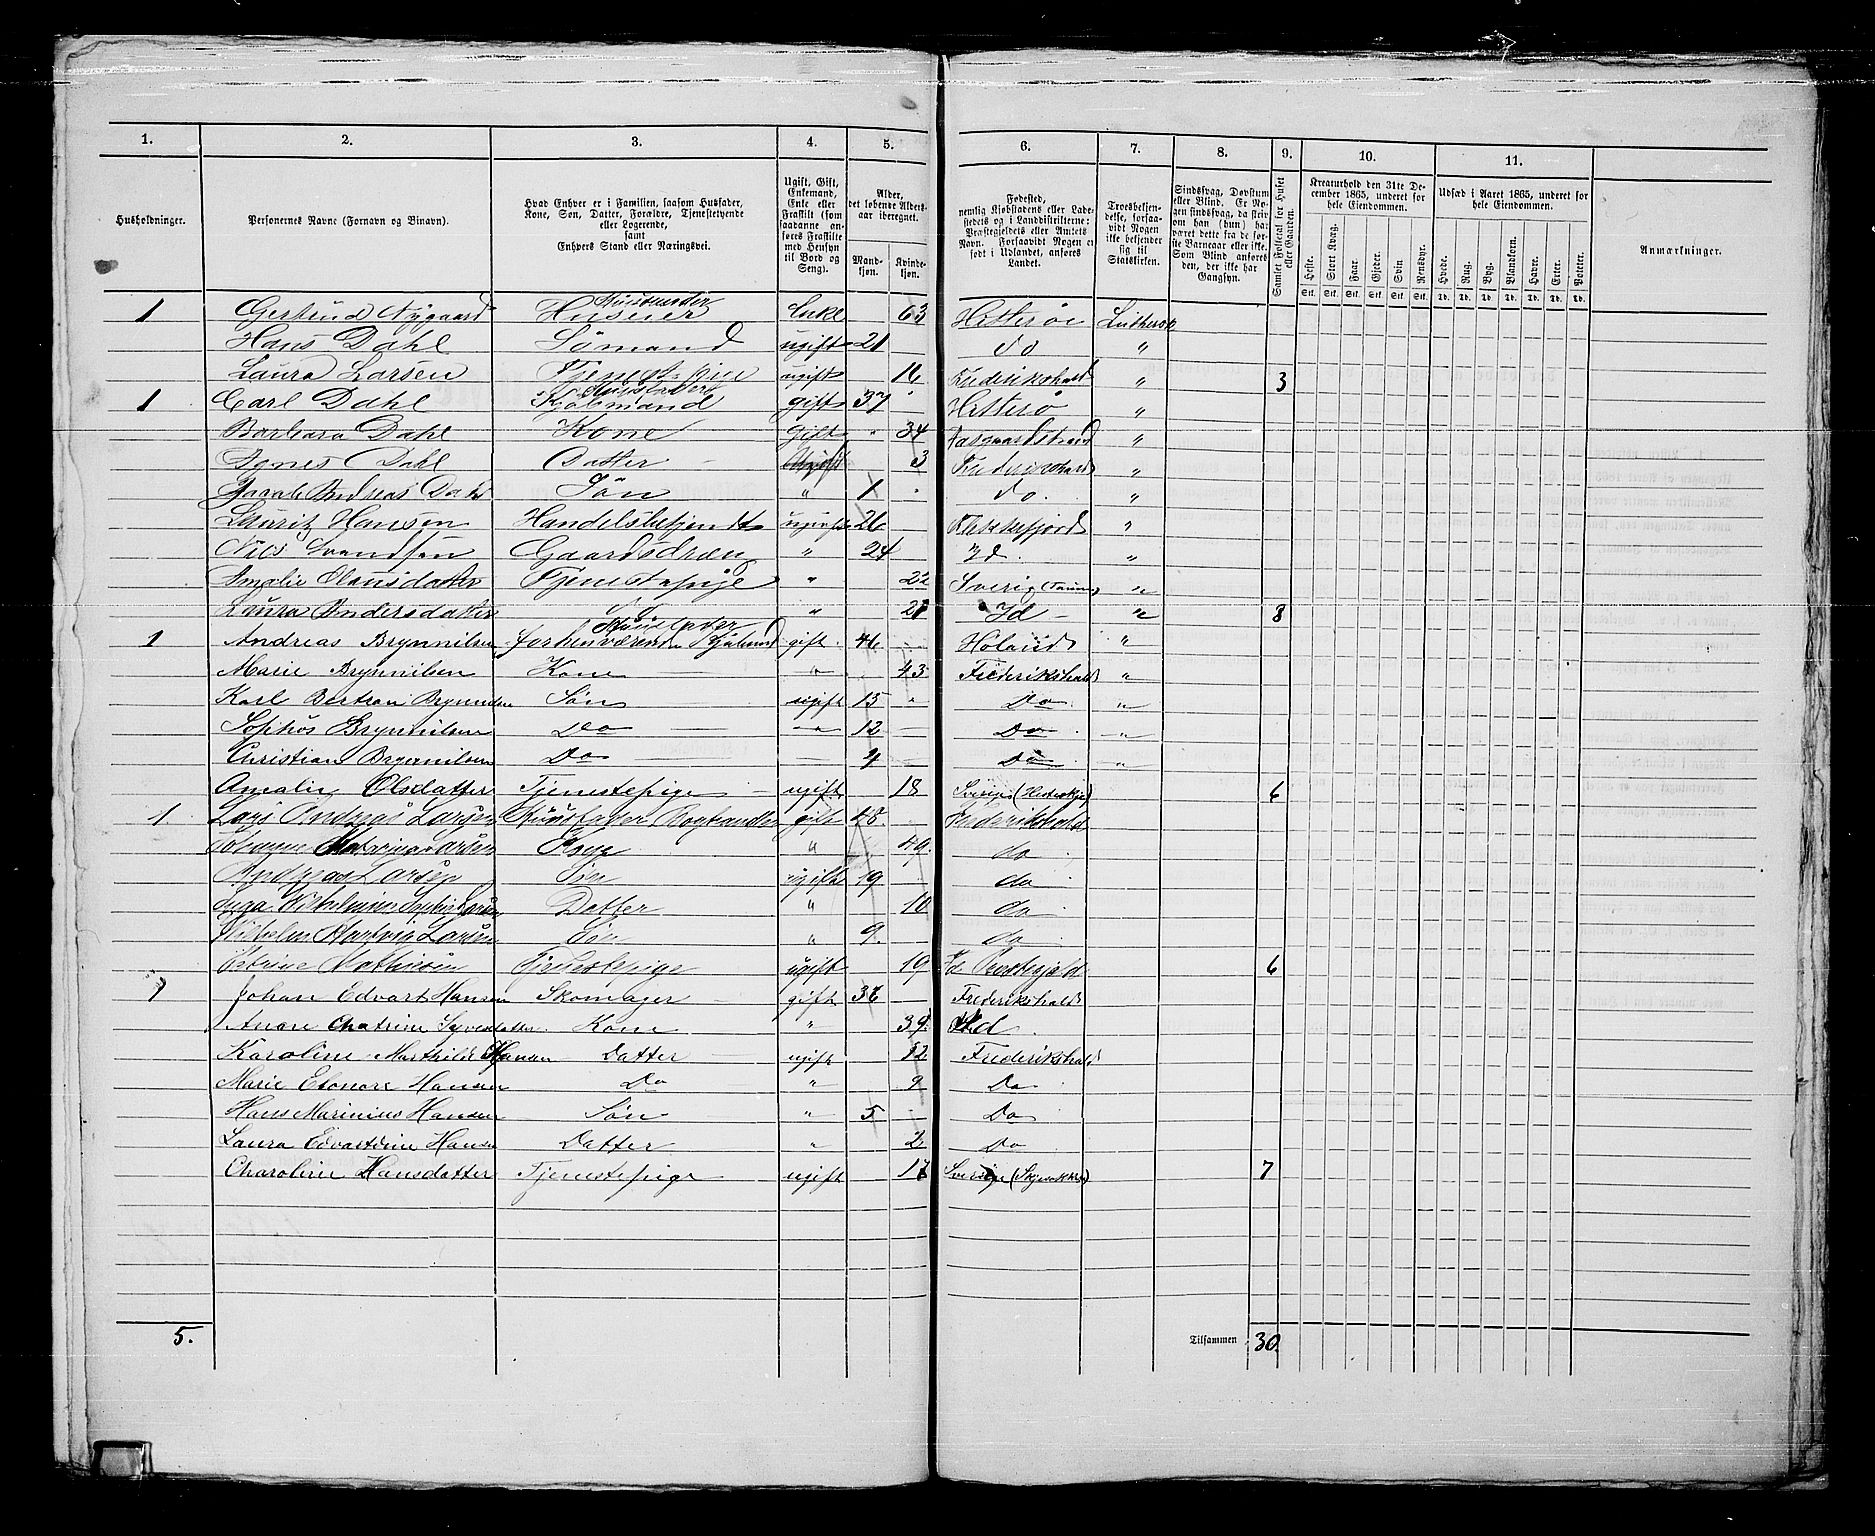 1. 2. 3. 4. 5. 6. 7. 8. 9. 10. 11.
Husholdninger.
Personernes Navne (Fornavn og Binavn).
Hvad Enhver er i Familien, saasom Husfader, Kone, Søn, Datter, Forældre, Tjenestetyende eller Logerende, samt Enhvers Stand eller Næringsvei.
Ugift, Gift, Enkemand, Enke eller Fraskilt (som saadanne anføres Fraskilte med Hensyn til Bord og Seng).
Alder, det løbende Aldersaar iberegnet.
Mandkjøn. Kvindekjøn.
Fødested, nemlig Kjøbstadens eller Ladestedets og i Landdistrikterne: Præstegjeldets eller Amtets Navn. Forsaavidt Nogen er født i Udlandet, anføres Landet.
Troesbekjendelse, forsaavidt Nogen ikke bekjender sig til Statskirken.
Sindssvag, Døvstum eller Blind. Er Nogen sindssvag, da skriv om han (hun) har været dette fra de første Barneaar eller ikke. Som Blind anføres den, der ikke har Gangsyn.
Samlet Folketal for Huset eller Gaarden.
Kreaturhold den 31te December 1865, underet for hele Eiendommen.
Heste. Stort Kvæg. Faar. Gjeder. Svin Rensdyr.
Stk. Stk. Stk. Stk. Stk. Stk.
Udsæd i Aaret 1865, underet for hele Eiendommen.
Hvede. Rug. Byg. Blandkorn. Havre. Erter. Poteter.
Td. Td. Td. Td. Td. Td. Td.
Anmærkninger.
1 Gertrud Nygaard Husmoder Enke 63 Hitterøe Luthersk
Hans Dahl Sømand ugift 21 do "
Laura Larsen ugift 16 Frederikshald " 3
1 Carl Dahl Husfader gift 37 Hitterø "
Barbara Dahl Kone gift " 34 Aasgaardstrand "
Agnes Dahl Datter 3 Frederikshald "
Jacob Andreas Dahl Søn " 1 do. "
Lauritz Hansen Handelsbetjendt ugivt 26 Flekkefjord "
Nils Svendsen Gaardsdreng " 24 Id. "
Amalie Olausdatter Tjenestepige " 22 Sverig "
Laura Andersdatter " Id "
8
1 Andreas Brynnilsen Husfader gift 46 Høland "
Marie Brynnilsen Kone " 43 Frederikshald "
Karl Bertran Brynnilsen Søn ugift 15 " Do. "
Sophus Brynnilsen Do " 12 Do. "
Christian Brynnilsen Do 4 Do "
Amalie Olsdatter Tjenestepige ugift 18 Sverige 6
1 Lars Andreas Larsen Huusfader gift 48 Frederikshald
Larsen Kone " 49. do
Andreas Larsen Søn ugift 19 do
Datter " 10 do
Vilhelm Hartvig Larsen Søn " 9. do
Petrine Mathisen Tjenestepige ugift 19 Id Præstegjeld 6
1 Johan Edvart Hansen Skomager gift 36 Frederikshald
Anne Chatrine Kone " 39 Id.
Karoline Marthilde Hansen Datter ugift 12 Frederikshald
Marie Elonore Hansen Do " 9 Do
Hans Marinius Hansen Søn " 5 Do
Laura Edvartdine Hansen Datter " 2 Do
Charoline Hansdatter Tjenestepige ugift 17 Sverige 7
5. Tilsammen 30.